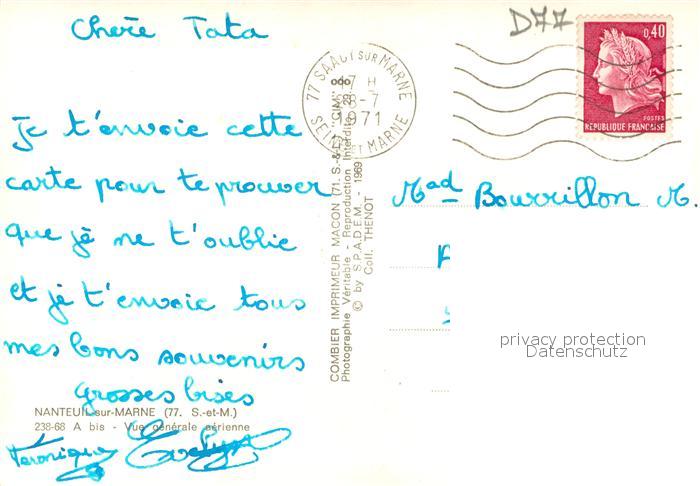 Chère Tata
je t'envoie cette
carte pour te prouver
que je ne t'oublie
et je t'envoie tous
mes bons souvenirs
grosses bises
Véronique Evelyne
NANTEUIL-sur-MARNE (77. S.-et-M.)
238-68 A bis - Vue générale aérienne
COMBIER IMPRIMEUR MACON (71. S.-&-L.) "CIM"
Photographie Véritable - Reproduction Interdite
© by S.P.A.D.E.M. - 1969
Coll. THENOT
D77
77 SAACY SUR MARNE
7 H
8-7
1971
SEINE ET MARNE
0,40
POSTES
REPUBLIQUE FRANÇAISE
Mad Bourrillon M.
privacy protection
Datenschutz